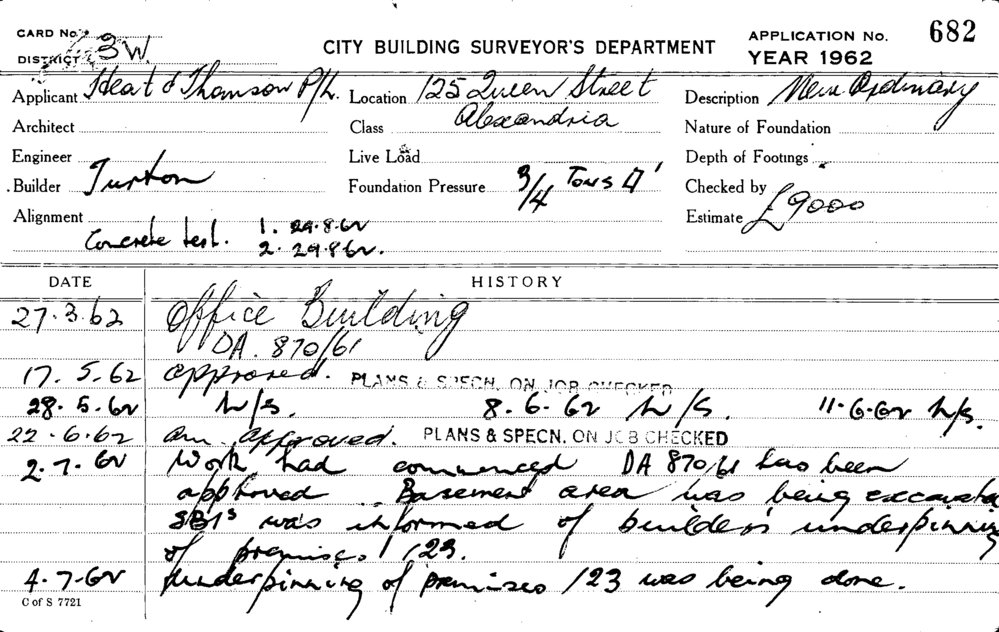 CARD No. 63W. CITY BUILDING SURVEYOR'S DEPARTMENT APPLICATION No. 682
DISTRICT YEAR 1962
Applicant Heat & Thomson P/L. Location 125 Queen Street Description New Ordinary
Architect Class Alexandria Nature of Foundation
Engineer Live Load Depth of Footings
Builder Turton Foundation Pressure 3/4 Tons □' Checked by
Alignment Estimate £9000
Concrete test. 1. 29.8.62
2. 29.8.62.
DATE HISTORY
27.3.62 Office Building
DA. 870/61
17.5.62 approved. PLANS & SPECN. ON JOB CHECKED
28.5.62 h/s. 8.6.62 h/s. 11.6.62 h/s.
22.6.62 am. approved. PLANS & SPECN. ON JOB CHECKED
2.7.62 Work had commenced DA 870/61 has been
approved. Basement area was being excavated
SBIs was informed of builders underpinning
of premises 123.
4.7.62 Underpinning of premises 123 was being done.
C of S 7721